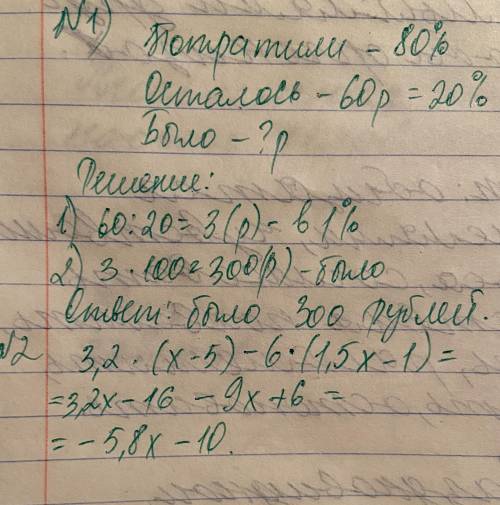 №1)
Потратили - 80%
Осталось - 60р = 20%
Было - ?р
Решение:
1) 60:20=3(р)- в 1%
2) 3·100=300(р)-было
Ответ: было 300 рублей.
№2 3,2·(x-5)-6·(1,5x-1)=
=3,2x-16-9x+6=
=-5,8x-10.